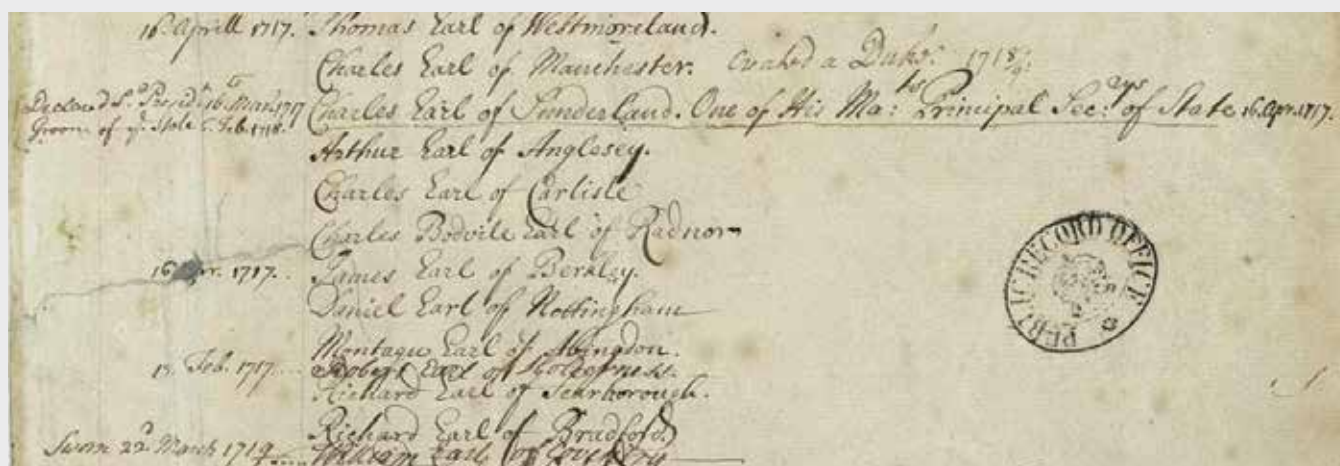 16. Aprill 1717. Thomas Earl of Westmoreland.
Charles Earl of Manchester. Created a Duke: 1718/9:
Declared Ld. Presidt. 16. Mar. 1717 Charles Earl of Sunderland. One of His Ma:ts Principal Sec:rys of State 16. Apr. 1717.
Groom of ye. Stole 6. Feb. 1718.
Arthur Earl of Anglesey.
Charles Earl of Carlisle
Charles Bodvile Earl of Radnor
16 1717. James Earl of Berkley.
Daniel Earl of Nottingham
Montagu Earl of Abingdon.
13. Feb. 1717. Robert Earl of Holderness.
Richard Earl of Scarborough.
Richard Earl of Bradford
Sworn 22d. March 1719 William Earl of Coventry
PUBLIC RECORD OFFICE